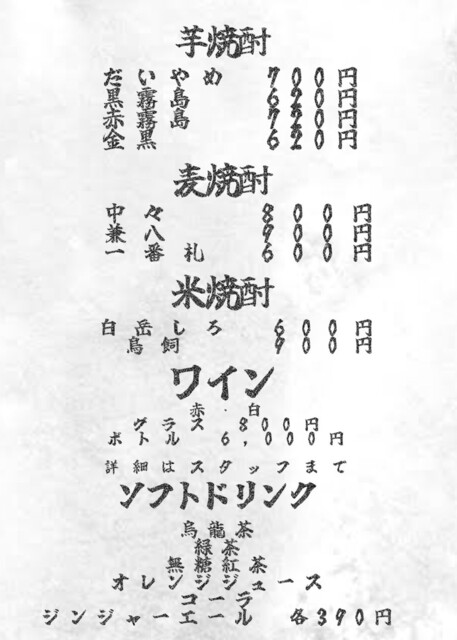 芋焼酎
だいやめ 700円
黒霧島 620円
赤霧島 720円
金黒 620円
麦焼酎
中々 800円
兼八 900円
一番札 600円
米焼酎
白岳しろ 600円
鳥飼 900円
ワイン
赤・白
グラス 800円
ボトル 6,000円
詳細はスタッフまで
ソフトドリンク
烏龍茶
緑茶
無糖紅茶
オレンジジュース
コーラ
ジンジャーエール 各390円